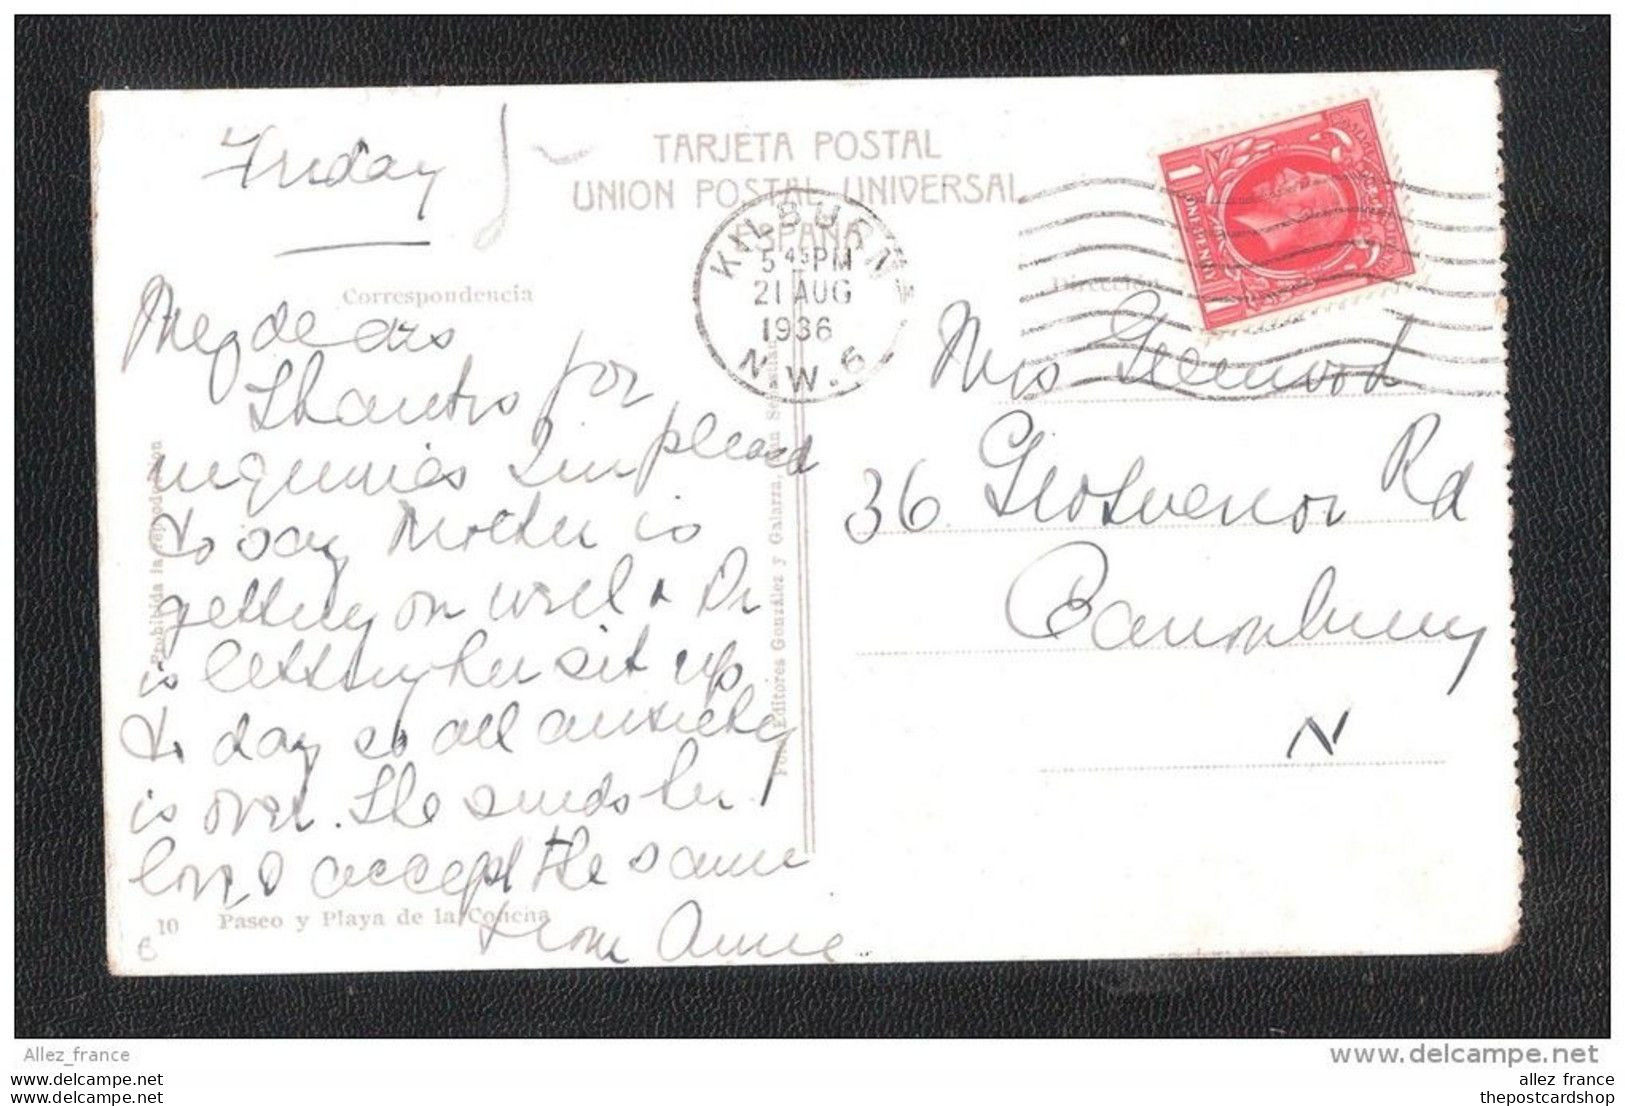 Friday
TARJETA POSTAL
UNION POSTAL UNIVERSAL
ESPAÑA
Correspondencia
Dirección
KILBURN
5 45 PM
21 AUG
1936
N.W.6
1 ONE PENNY
My dears
Thanks for
inquiries I'm pleased
to say Mother is
getting on well & Dr
is letting her sit up
to day so all anxiety
is over. She sends her
love, & accept the same
from Annie
Mrs Greenwood
36 Grosvenor Rd
Canonbury
N
Prohibida la reproducción
Editores González y Galarza, San Sebastián
10 Paseo y Playa de la Concha
6
Allez_france
www.delcampe.net
allez france
thepostcardshop
allez france
thepostcardshop